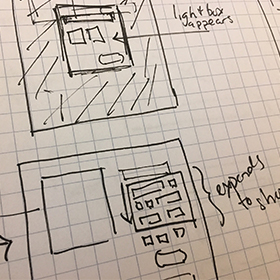 lightbox
appears
expends
to sho